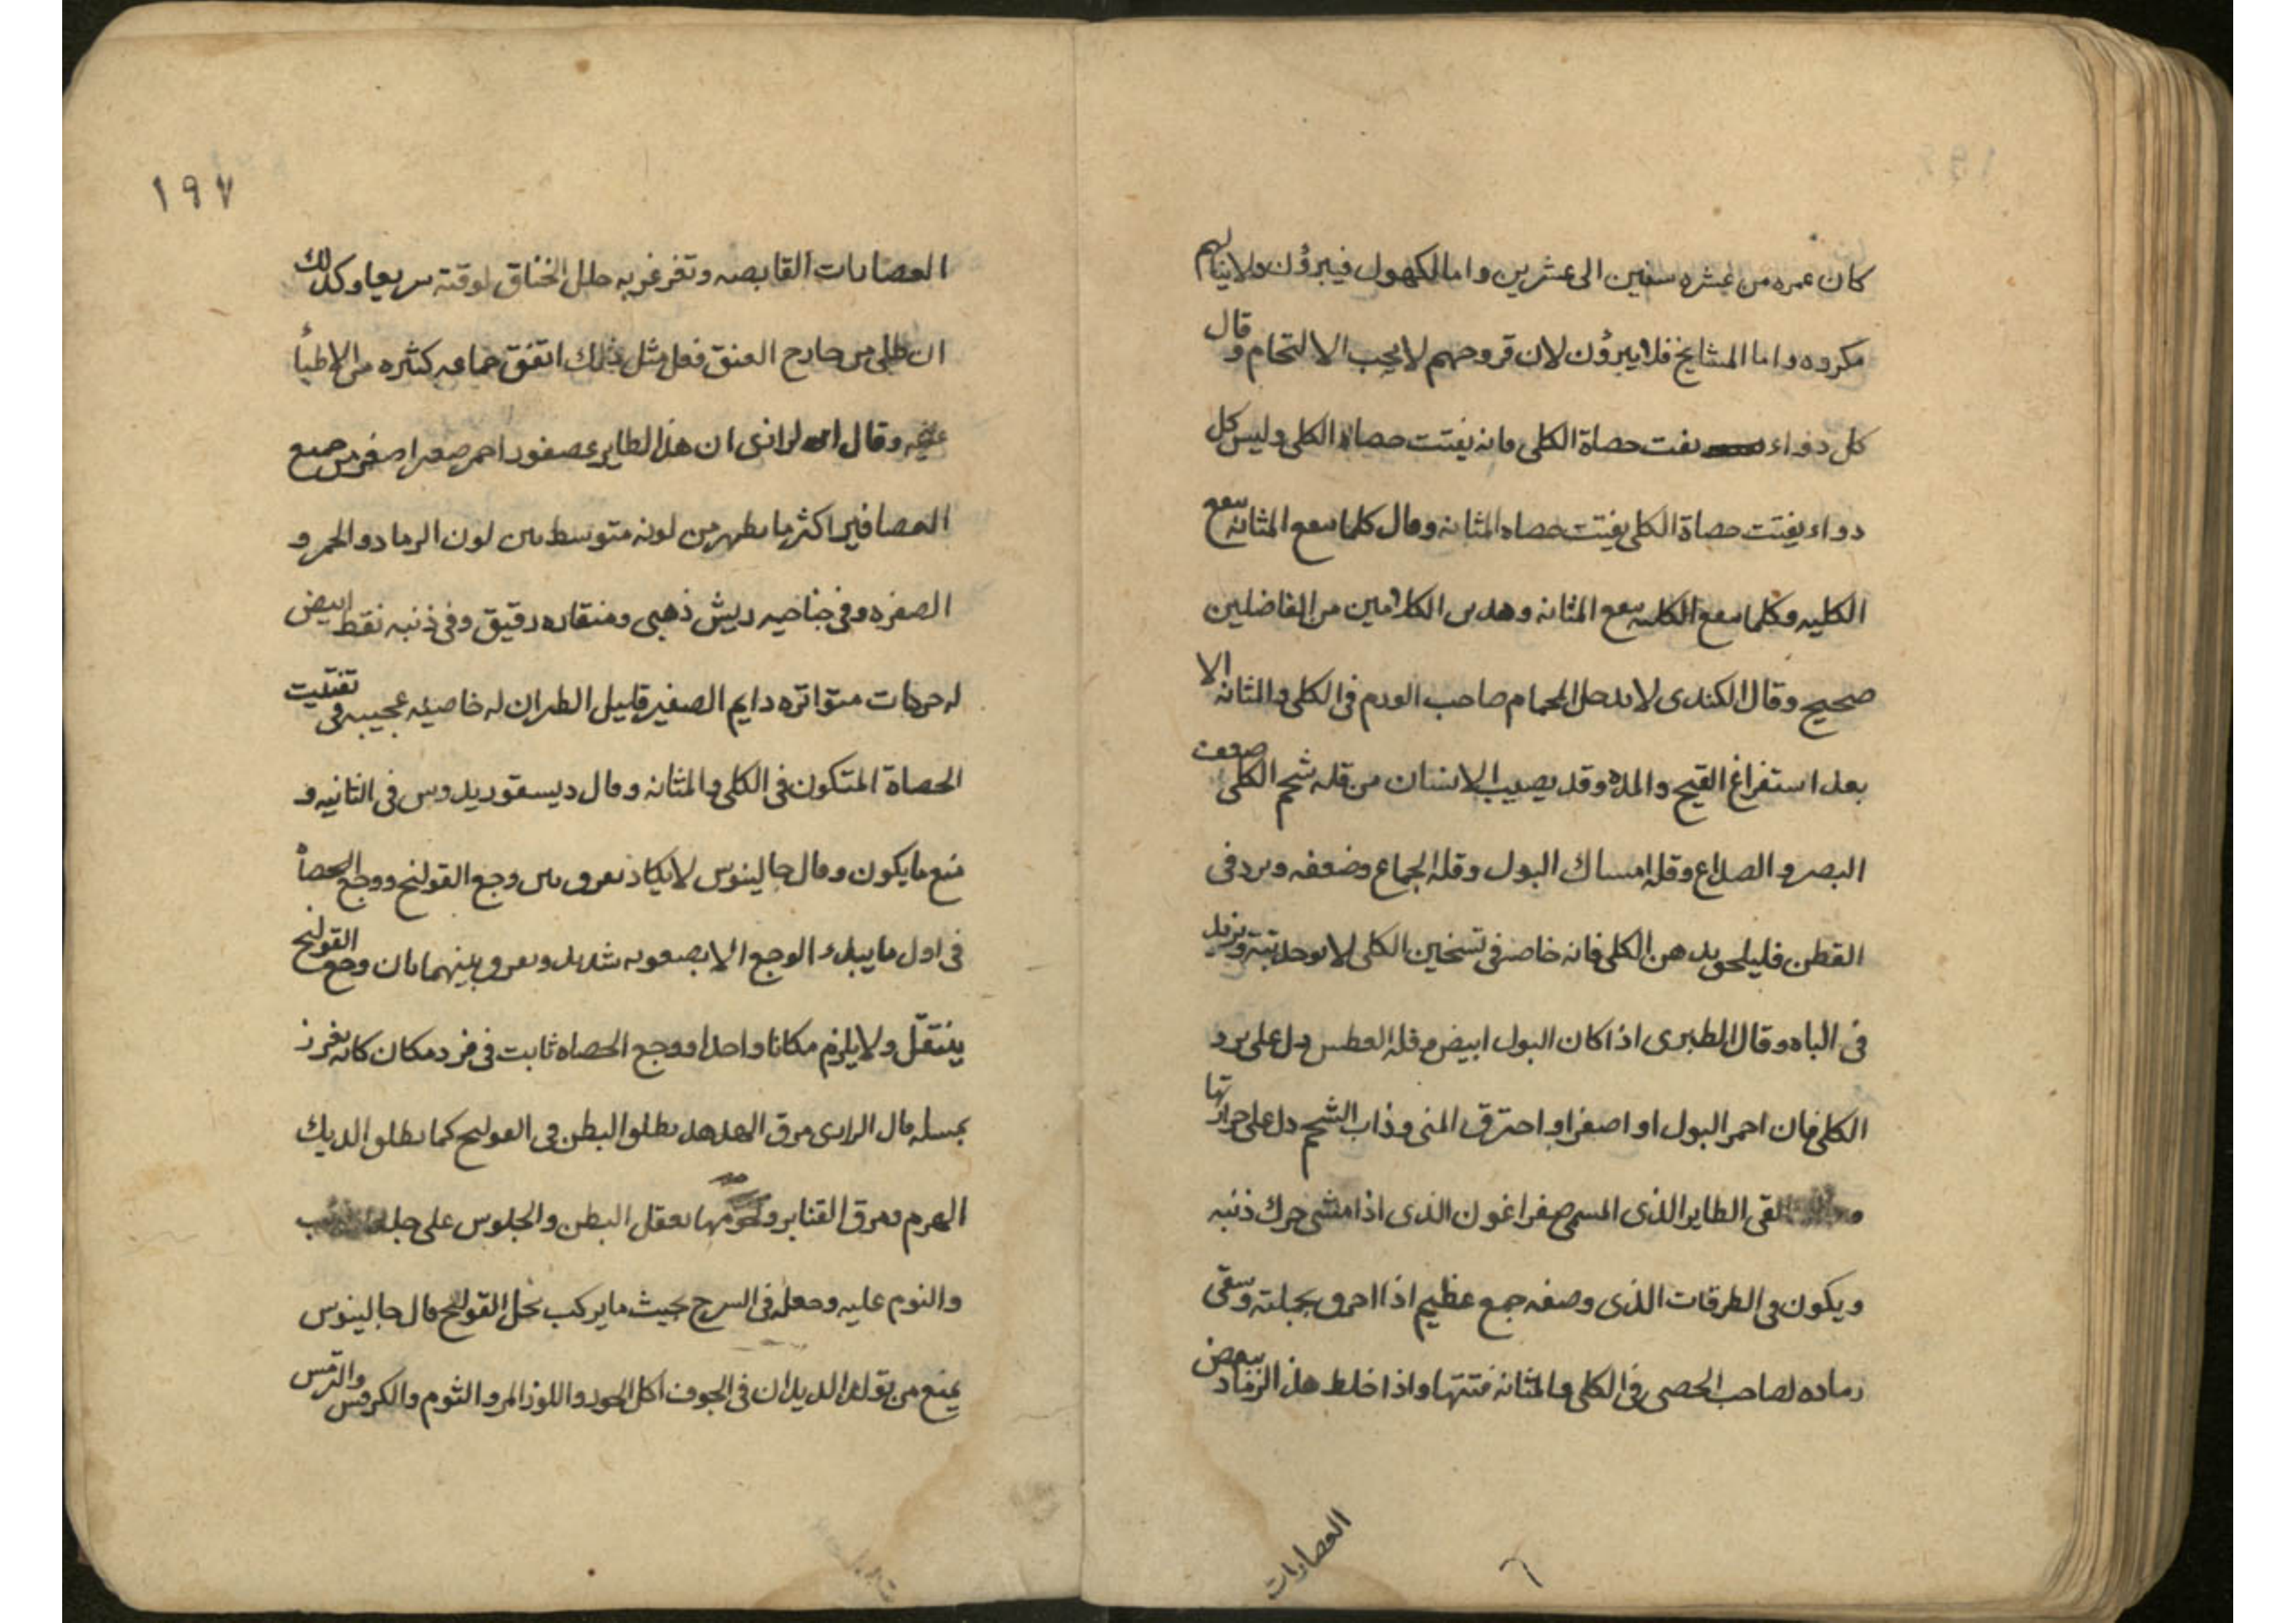 كان عمره من عشره سنين الى عشرين واما الكهول فيبرؤن ولاينالهم
مكروه واما المشايخ فلا يبرؤن لان قروحهم لا يجب الالتحام وقال
كل دواء يفت حصاة الكلى فانه يفتت حصاة الكلى وليس كل
دواء يفتت حصاة الكلى يفتت حصاه المثانه وقال كلما ينفع المثانه ينفع
الكليه وكلما ينفع الكليه ينفع المثانه وهذين الكلامين من الفاضلين
صحيح وقال الكندى لا يدخل الحمام صاحب الورم فى الكلى والمثانه الا
بعد استفراغ القيح والمده وقد يصيب الانسان من قله شحم الكلى ضعف
البصر والصداع وقله امساك البول وقله الجماع وضعفه وبرد فى
القطن فليلحق بدهن الكلى فانه خاصه فى تسخين الكلى لا توجد بتة ويزيد
فى الباه وقال الطبرى اذا كان البول ابيض مع قله العطس دل على برد
الكلى فان احمر البول او اصفر او احترق المنى وذاب الشحم دل على حرارتها
لقى الطاير الذى المسمى صفراغون الذى اذا مشى حرك ذنبه
ويكون فى الطرقات الذى وصفه جمع عظيم اذا احرق بجملته وسقى
رماده لصاحب الحصى فى الكلى والمثانه فتتها واذا خلط هذا الرماد ببعض
العصارات
١٩٧
العصارات القابضه وتغرغر به حلل الخناق لوقته سريعا وكذلك
ان طلى من خارج العنق فعل مثل ذلك اتفق جماعه كثيره من الاطبأ
عليه وقال الرازى ان هذا الطاير عصفور احمر صغير اصغر من جميع
العصافير اكثر ما يظهر من لونه متوسط بين لون الرماد والحمر و
الصفره وفى جناحيه ريش ذهبى ومنقاره رقيق وفى ذنبه نقط ابيض
له حركات متواتره دايم الصفير قليل الطيران له خاصيه عجيبه فى تفتيت
الحصاة المتكون فى الكلى والمثانه وقال ديسقوريدوس فى الثانيه و
منع مايكون وقال جالينوس لايكاد يعرف بين وجع القولنج ووجع الحصاة
فى اول مايبدء الوجع الا بصعوبه شديد ويعرف بينهما بان وجع القولنج
ينتقل ولا يلزم مكانا واحدا ووجع الحصاه ثابت فى فرد مكان كانه يغرز
بمسله قال الرازى مرق الهدهد يطلق البطن فى القولنج كما يطلق الديك
الهرم ومرق القنابر ولحومها يعقل البطن والجلوس على جلد
والنوم عليه وجعله فى السرج بحيث مايركب يحل القولنج قال جالينوس
يمنع من تولد الديدان فى الجوف اكل الجوز واللوز المر والثوم والكرفس والترمس